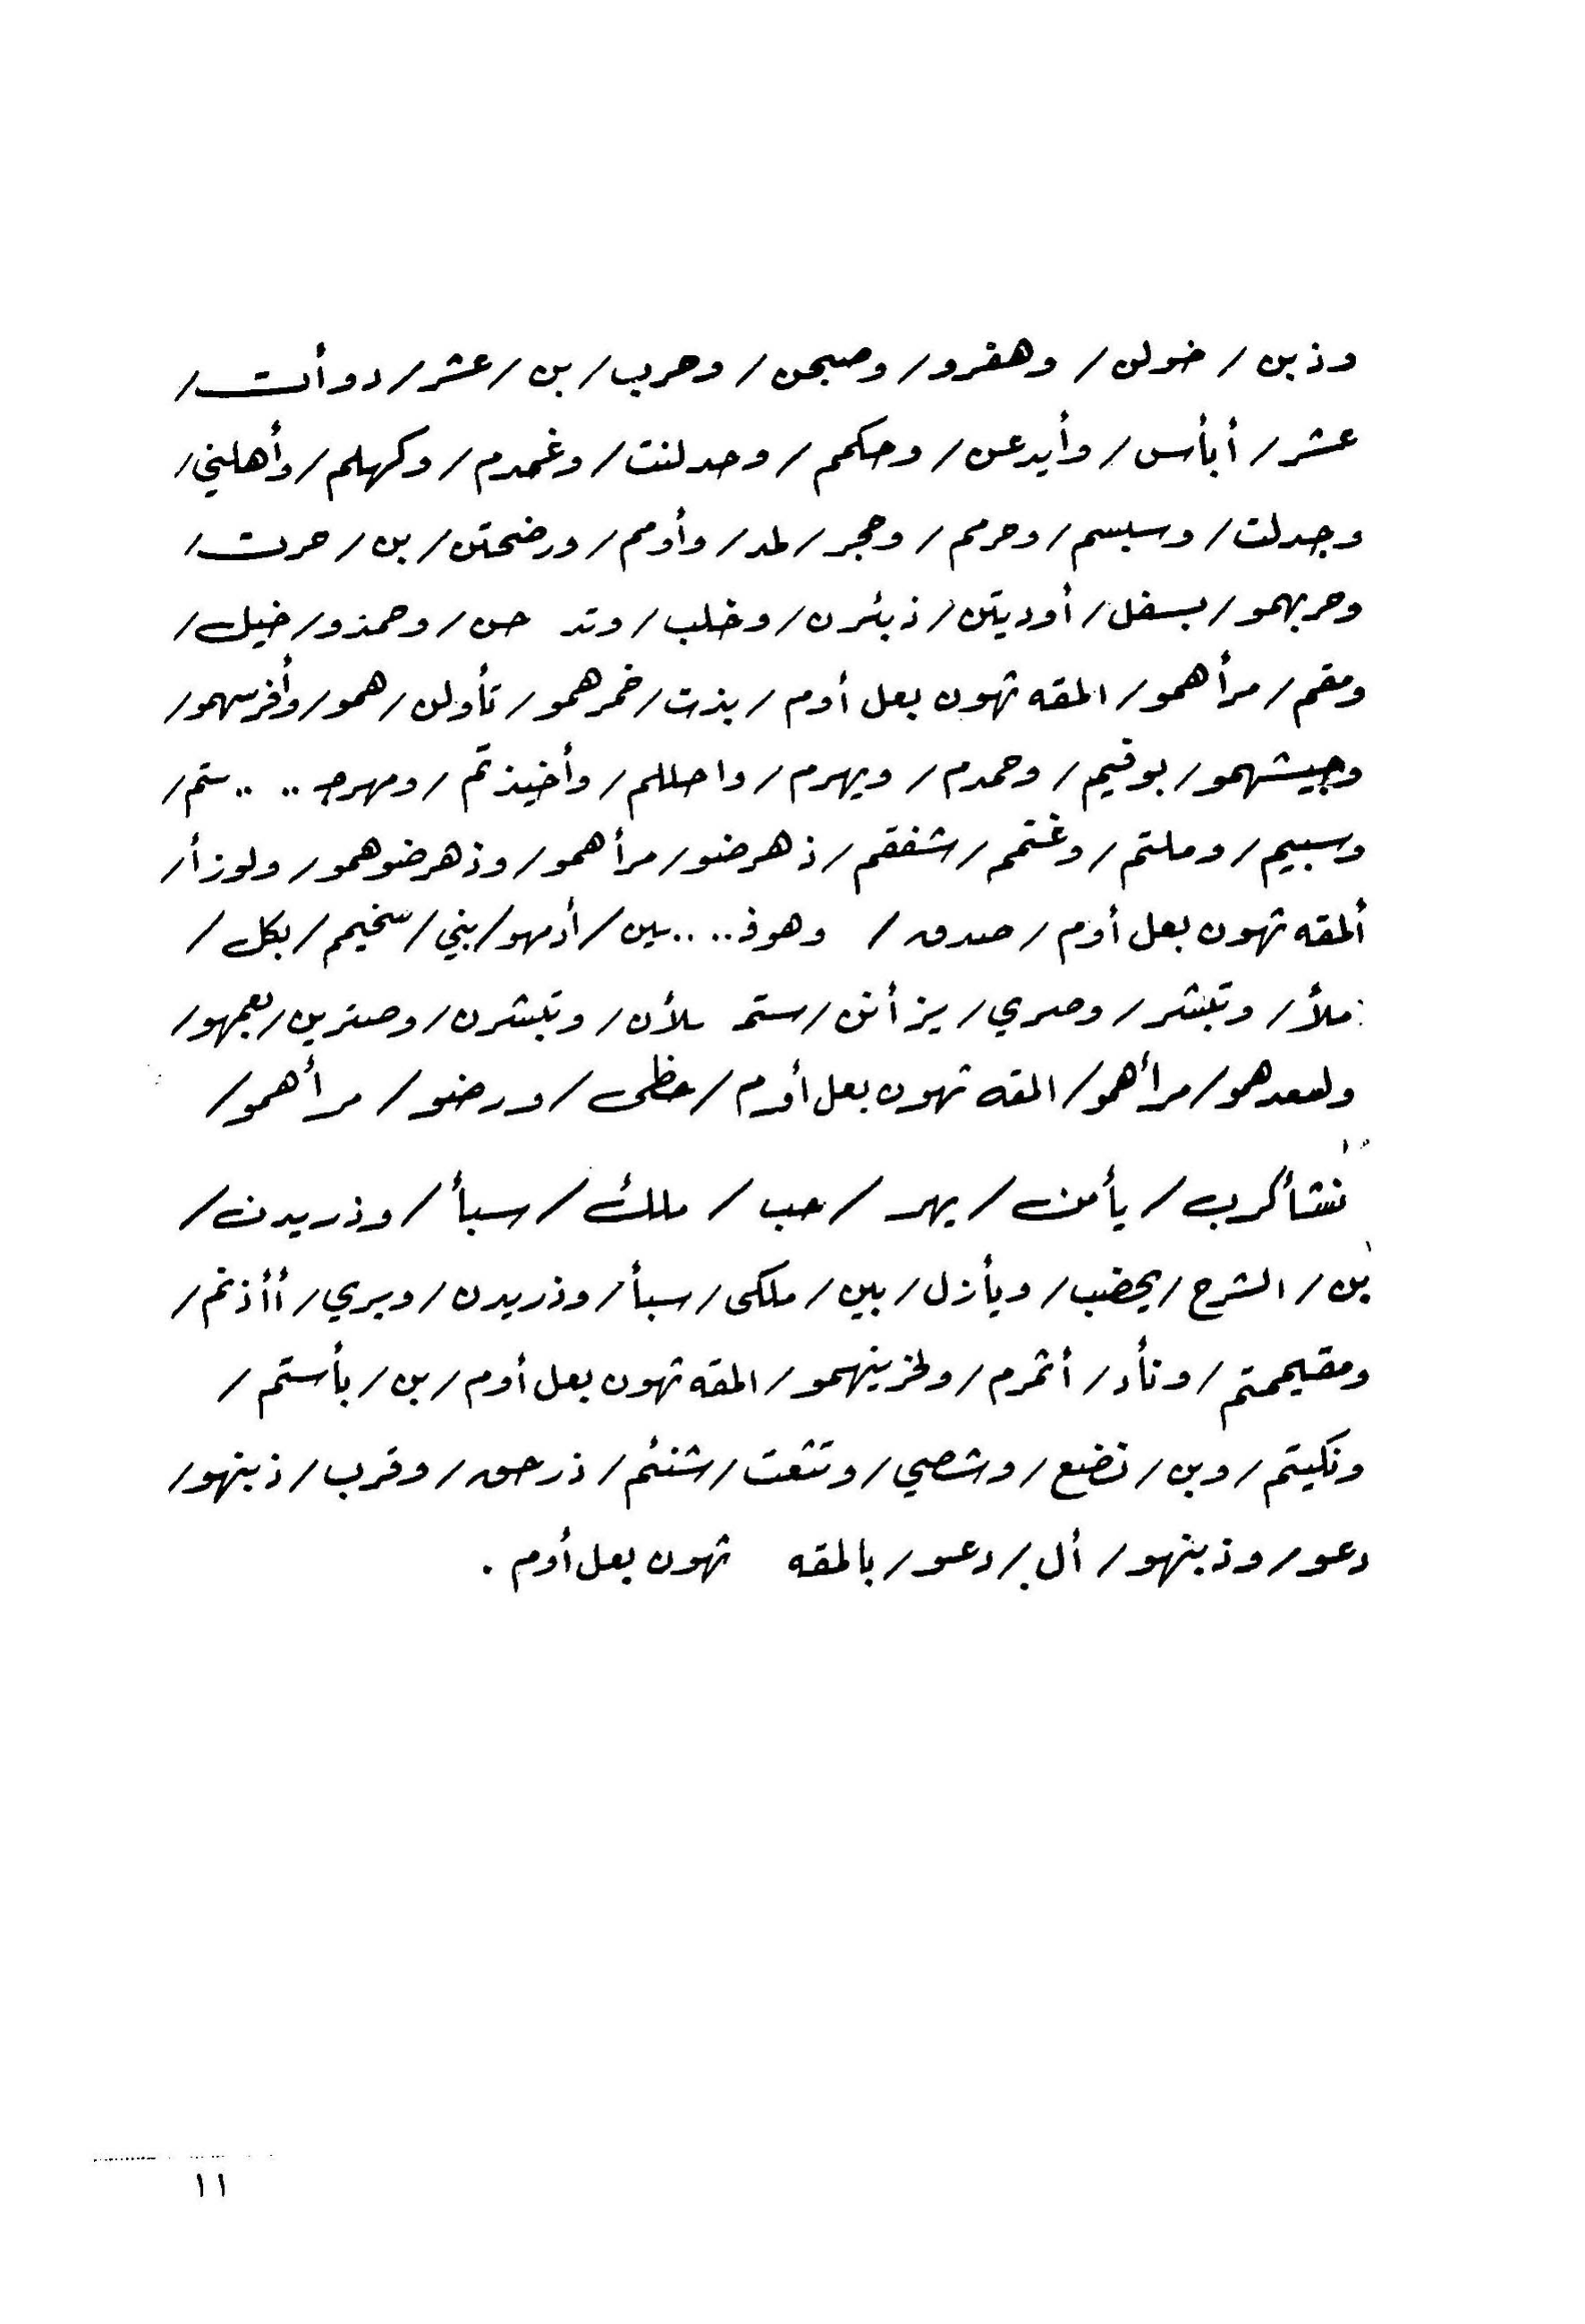 وذبن / خولن / وهفرو / وصبحن / وحرب / بن / عشر / دوأت /
عشر / أبأس / وأيدعن / وحكمم / وحدلنت / وغمدم / وكهلم / وأهلني /
وجدلت / وسبسم / وحرمم / وحجر / لمد / وأومم / ورضحتن / بن / حرت /
وحربهمو / بسفل / أوديتن / ذبئرن / وخلب / وتد حن / وحمذو / خيل /
ومقم / مرأهمو / المقه ثهون بعل أوم / بذت / خمرهمو / تأولن / همو / وأفرسهمو /
وجيشهمو / بوفيم / وحمدم / ويهرم / واحللم / وأخيذتم / ومهرجـ .. .. ستم /
وسبيم / وملتم / وغنمم / شفقم / ذهرضو / مرأهمو / وذهرضوهمو / ولوزأ /
ألمقه ثهون بعل أوم / صدق / وهوفـ .. .. ين / أدمهو / بني / سخيمم / بكل /
ملأ / وتبشر / وصري / يزأنن / ستمـ ـلأن / وتبشرن / وصترين / بعمهو /
ولسعدهمو / مرأهمو / المقه ثهون بعل أوم / حظى / ورضو / مرأهمو /
نشأكرب / يأمن / يهر / حب / ملك / سبأ / وذريدن /
بن / الشرح / يحضب / ويأزل / بين / ملكى / سبأ / وذريدن / وبري / أأذنم /
ومقيممتم / ونأد / أثمرم / ولخرينهمو / المقه ثهون بعل أوم / بن / بأستم /
ونكيتم / وبن / نضع / وشصي / وتثعت / شنئم / ذرحق / وقرب / ذبنهو /
دعو / وذبنهو / أل / دعو / بالمقه ثهون بعل أوم .
١١